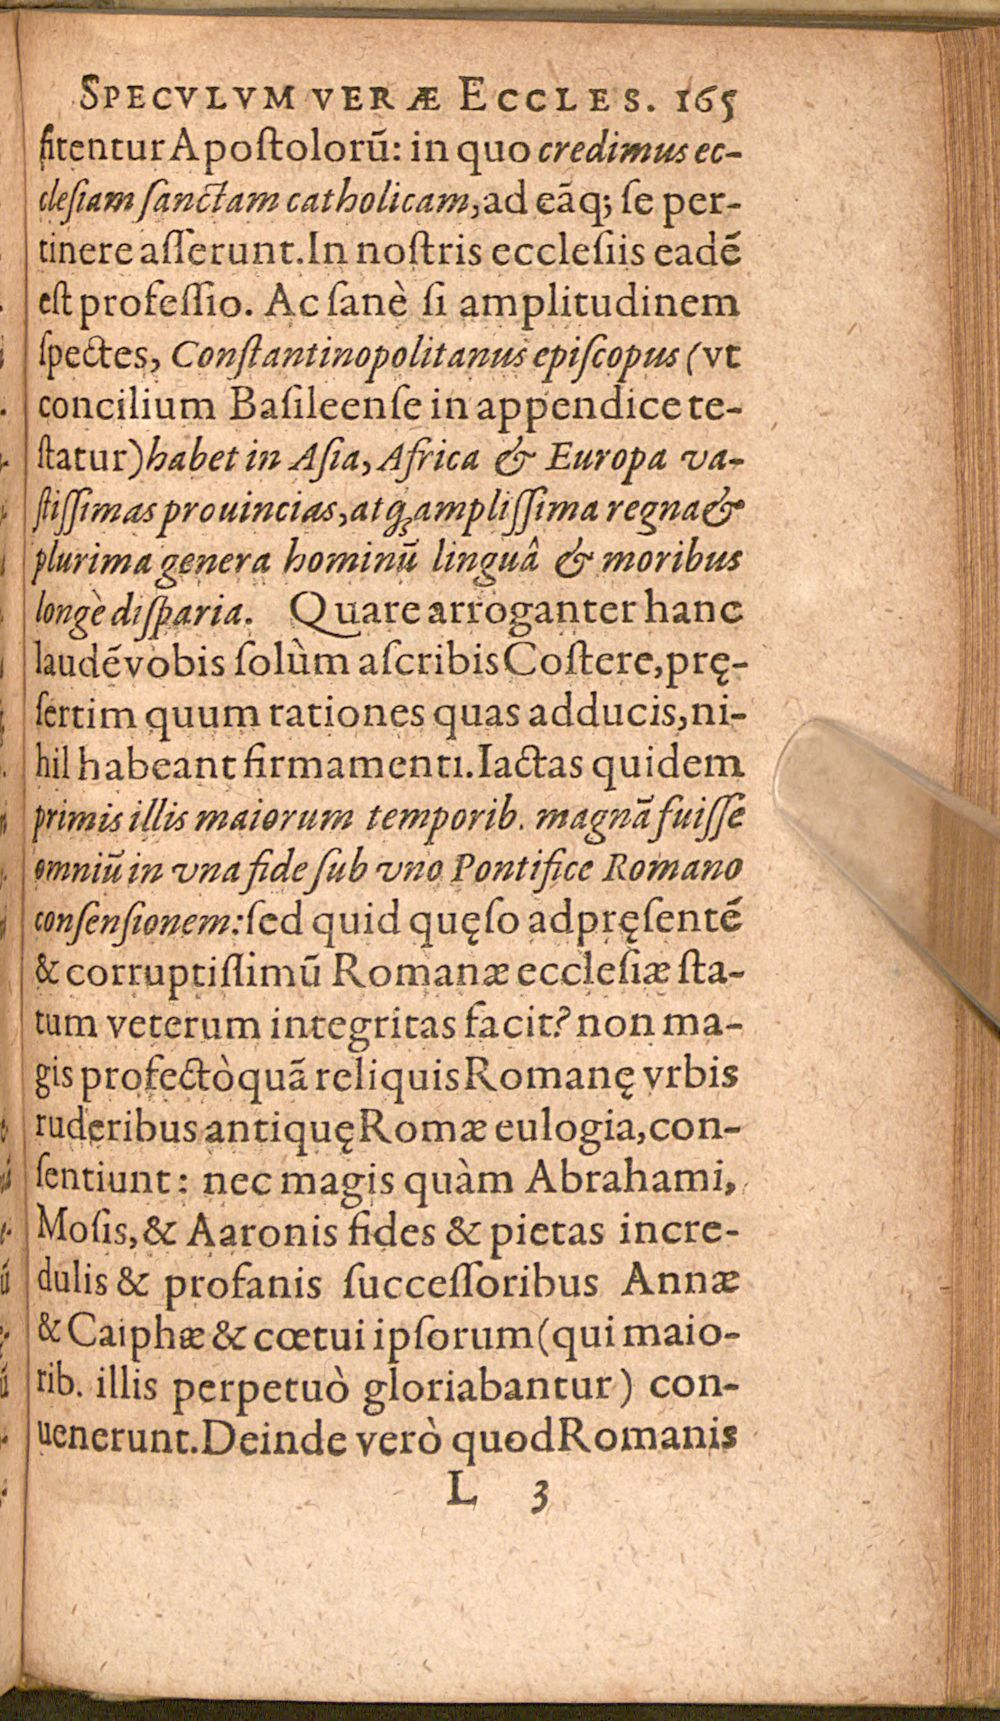 SPECVLVM VERÆ ECCLES. 165
fitentur Apoſtolorū: in quo credimus ec-
cleſiam ſanctam catholicam, ad eāq; ſe per-
tinere aſſerunt. In noſtris eccleſiis eadē
eſt profeſſio. Ac ſanè ſi amplitudinem
ſpectes, Conſtantinopolitanus epiſcopus (vt
concilium Baſileenſe in appendice te-
ſtatur) habet in Aſia, Africa & Europa va-
ſtiſſimas prouincias, atq; ampliſſima regna &
plurima genera hominū linguâ & moribus
longè diſparia. Quare arroganter hanc
laudē vobis ſolùm aſcribis Coſtere, prę-
ſertim quum rationes quas adducis, ni-
hil habeant firmamenti. Iactas quidem
primis illis maiorum temporib. magnā fuiſſe
omniū in vna fide ſub vno Pontifice Romano
conſenſionem: ſed quid quęſo ad pręſentē
& corruptiſſimū Romanæ eccleſiæ ſta-
tum veterum integritas facit? non ma-
gis profectò quā reliquis Romanę vrbis
ruderibus antiquę Romæ eulogia, con-
ſentiunt: nec magis quàm Abrahami,
Moſis, & Aaronis fides & pietas incre-
dulis & profanis ſucceſſoribus Annæ
& Caiphæ & cœtui ipſorum (qui maio-
rib. illis perpetuò gloriabantur) con-
uenerunt. Deinde verò quod Romanis
L 3